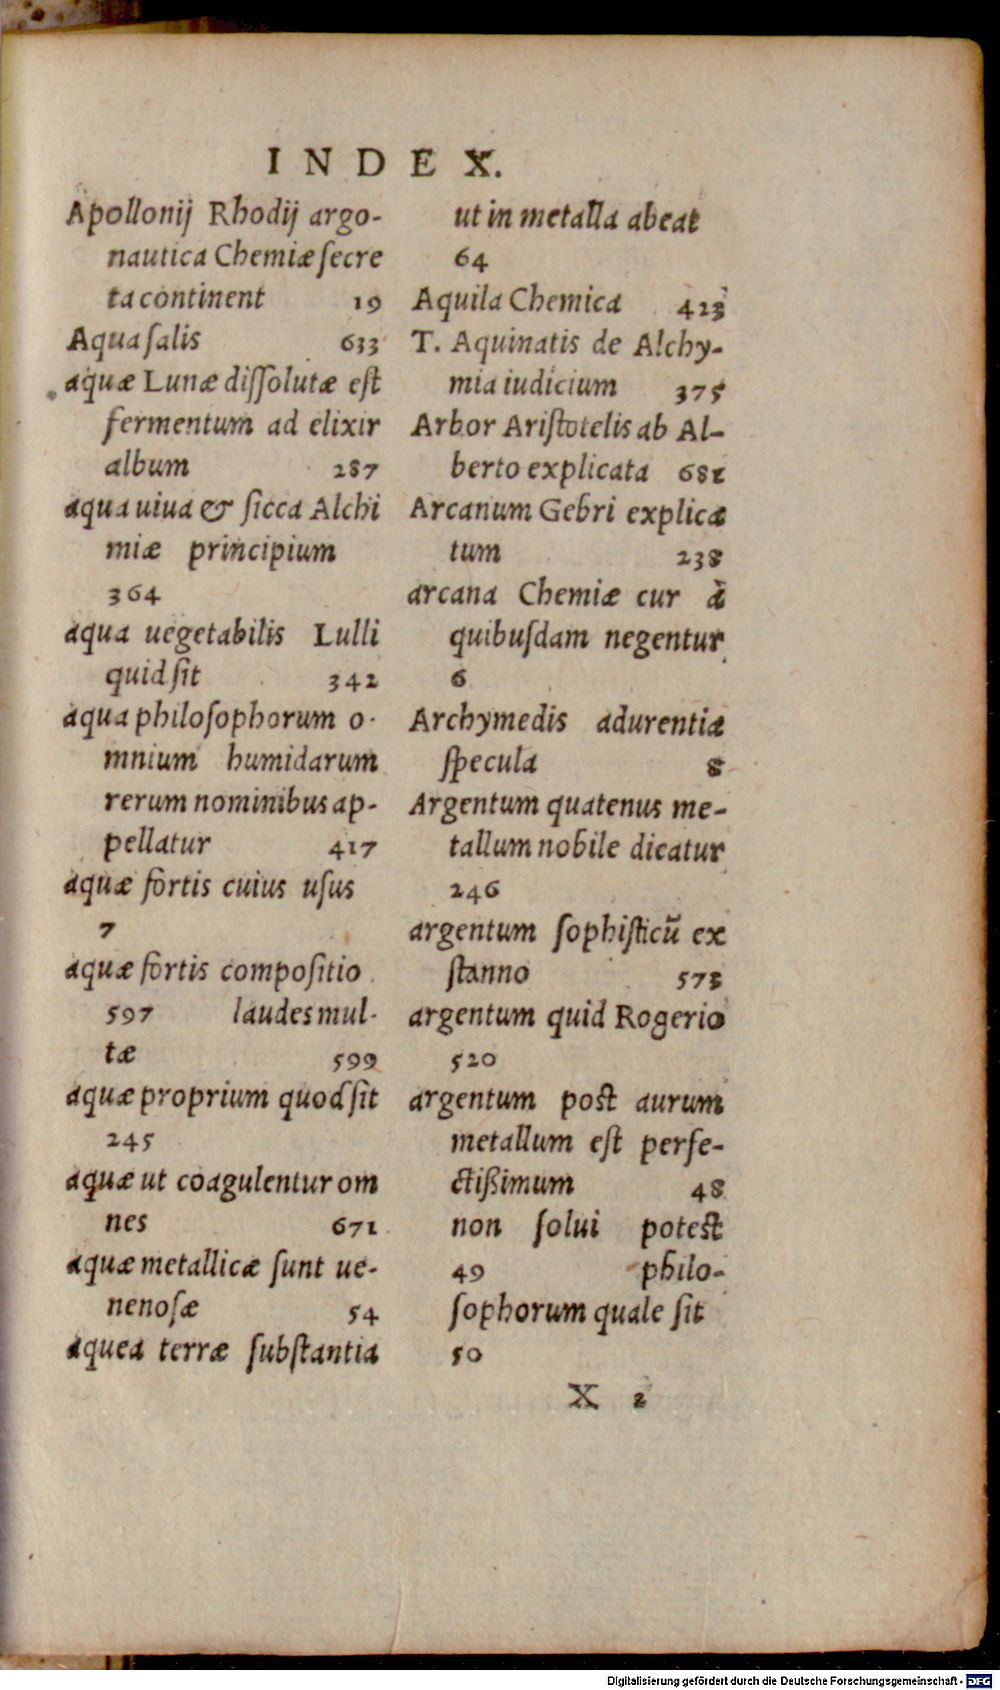 INDEX.
Apollonij Rhodij argo-
nautica Chemiæ ſecre
ta continent 19
Aqua ſalis 633
aquæ Lunæ diſſolutæ eſt
fermentum ad elixir
album 287
aqua uiua & ſicca Alchi
miæ principium
364
aqua uegetabilis Lulli
quid ſit 342
aqua philoſophorum o-
mnium humidarum
rerum nominibus ap-
pellatur 417
aquæ fortis cuius uſus
7
aquæ fortis compoſitio
597 laudes mul-
tæ 599
aquæ proprium quod ſit
245
aquæ ut coagulentur om
nes 671
aquæ metallicæ ſunt ue-
nenoſæ 54
aquea terræ ſubſtantia
ut in metalla abeat
64
Aquila Chemica 423
T. Aquinatis de Alchy-
mia iudicium 375
Arbor Ariſtotelis ab Al-
berto explicata 681
Arcanum Gebri explica
tum 238
arcana Chemiæ cur à
quibuſdam negentur
6
Archymedis adurentia
ſpecula 8
Argentum quatenus me-
tallum nobile dicatur
246
argentum ſophiſticũ ex
ſtanno 573
argentum quid Rogerio
520
argentum poſt aurum
metallum eſt perfe-
ctißimum 48
non ſolui poteſt
49 philo-
ſophorum quale ſit
50
X 2
Digitalisierung gefördert durch die Deutsche Forschungsgemeinschaft - DFG